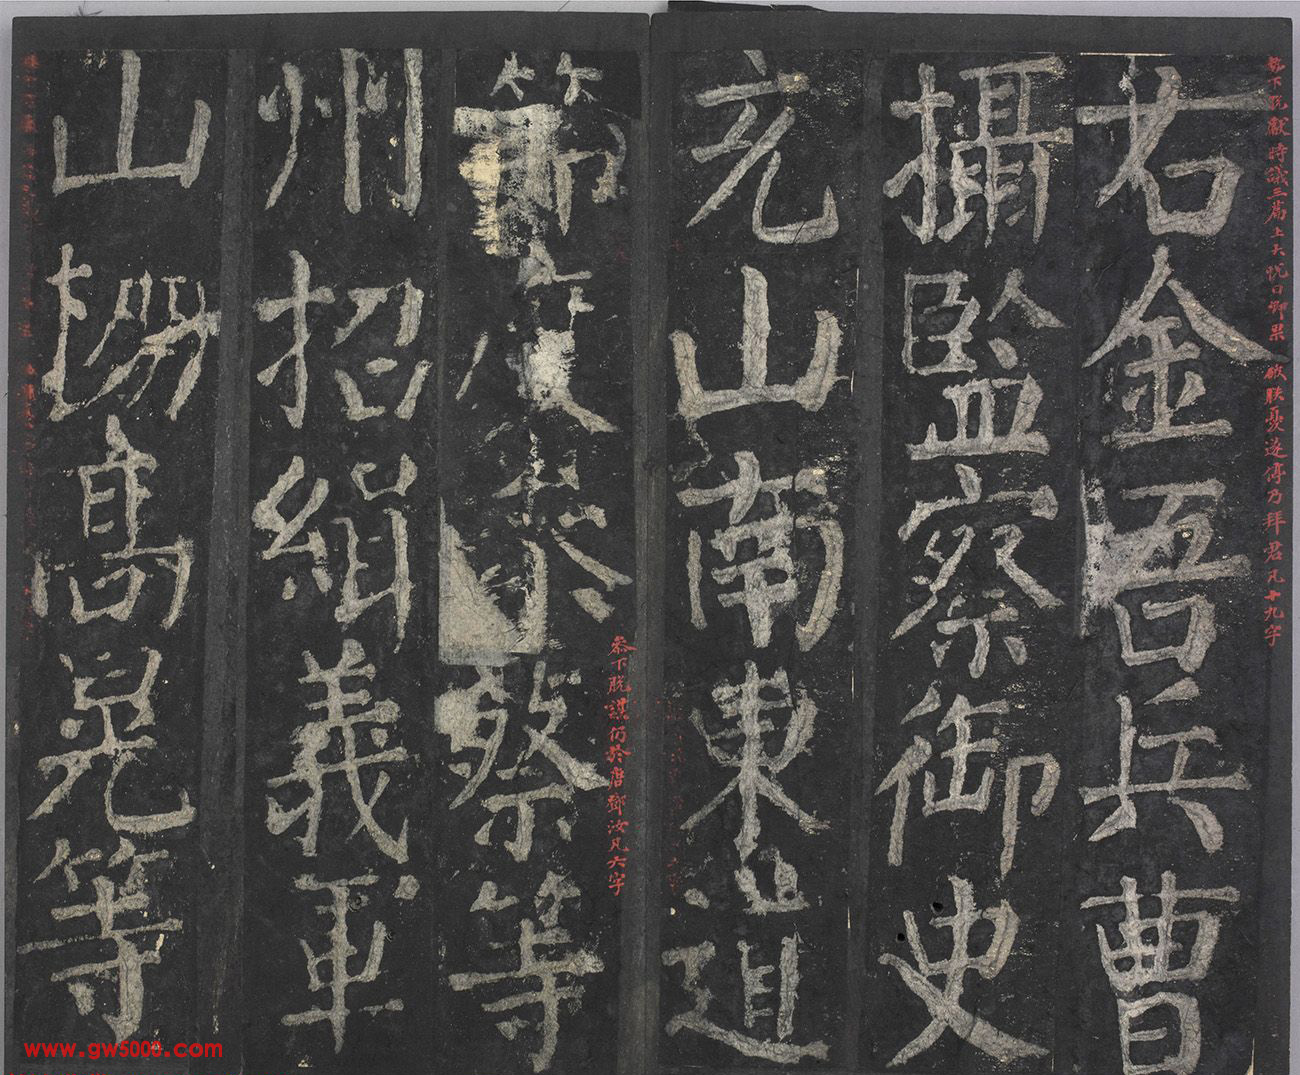 勢下脫獻時議三篇上大悅曰卿果破朕憂遂停乃拜君凡十九字
右金吾兵曹
攝監察御史
充山南東道
節度參蔡等
參下脫謀仍於唐鄧汝凡六字
州招緝義軍
山棚高晃等
www.gw5000.com